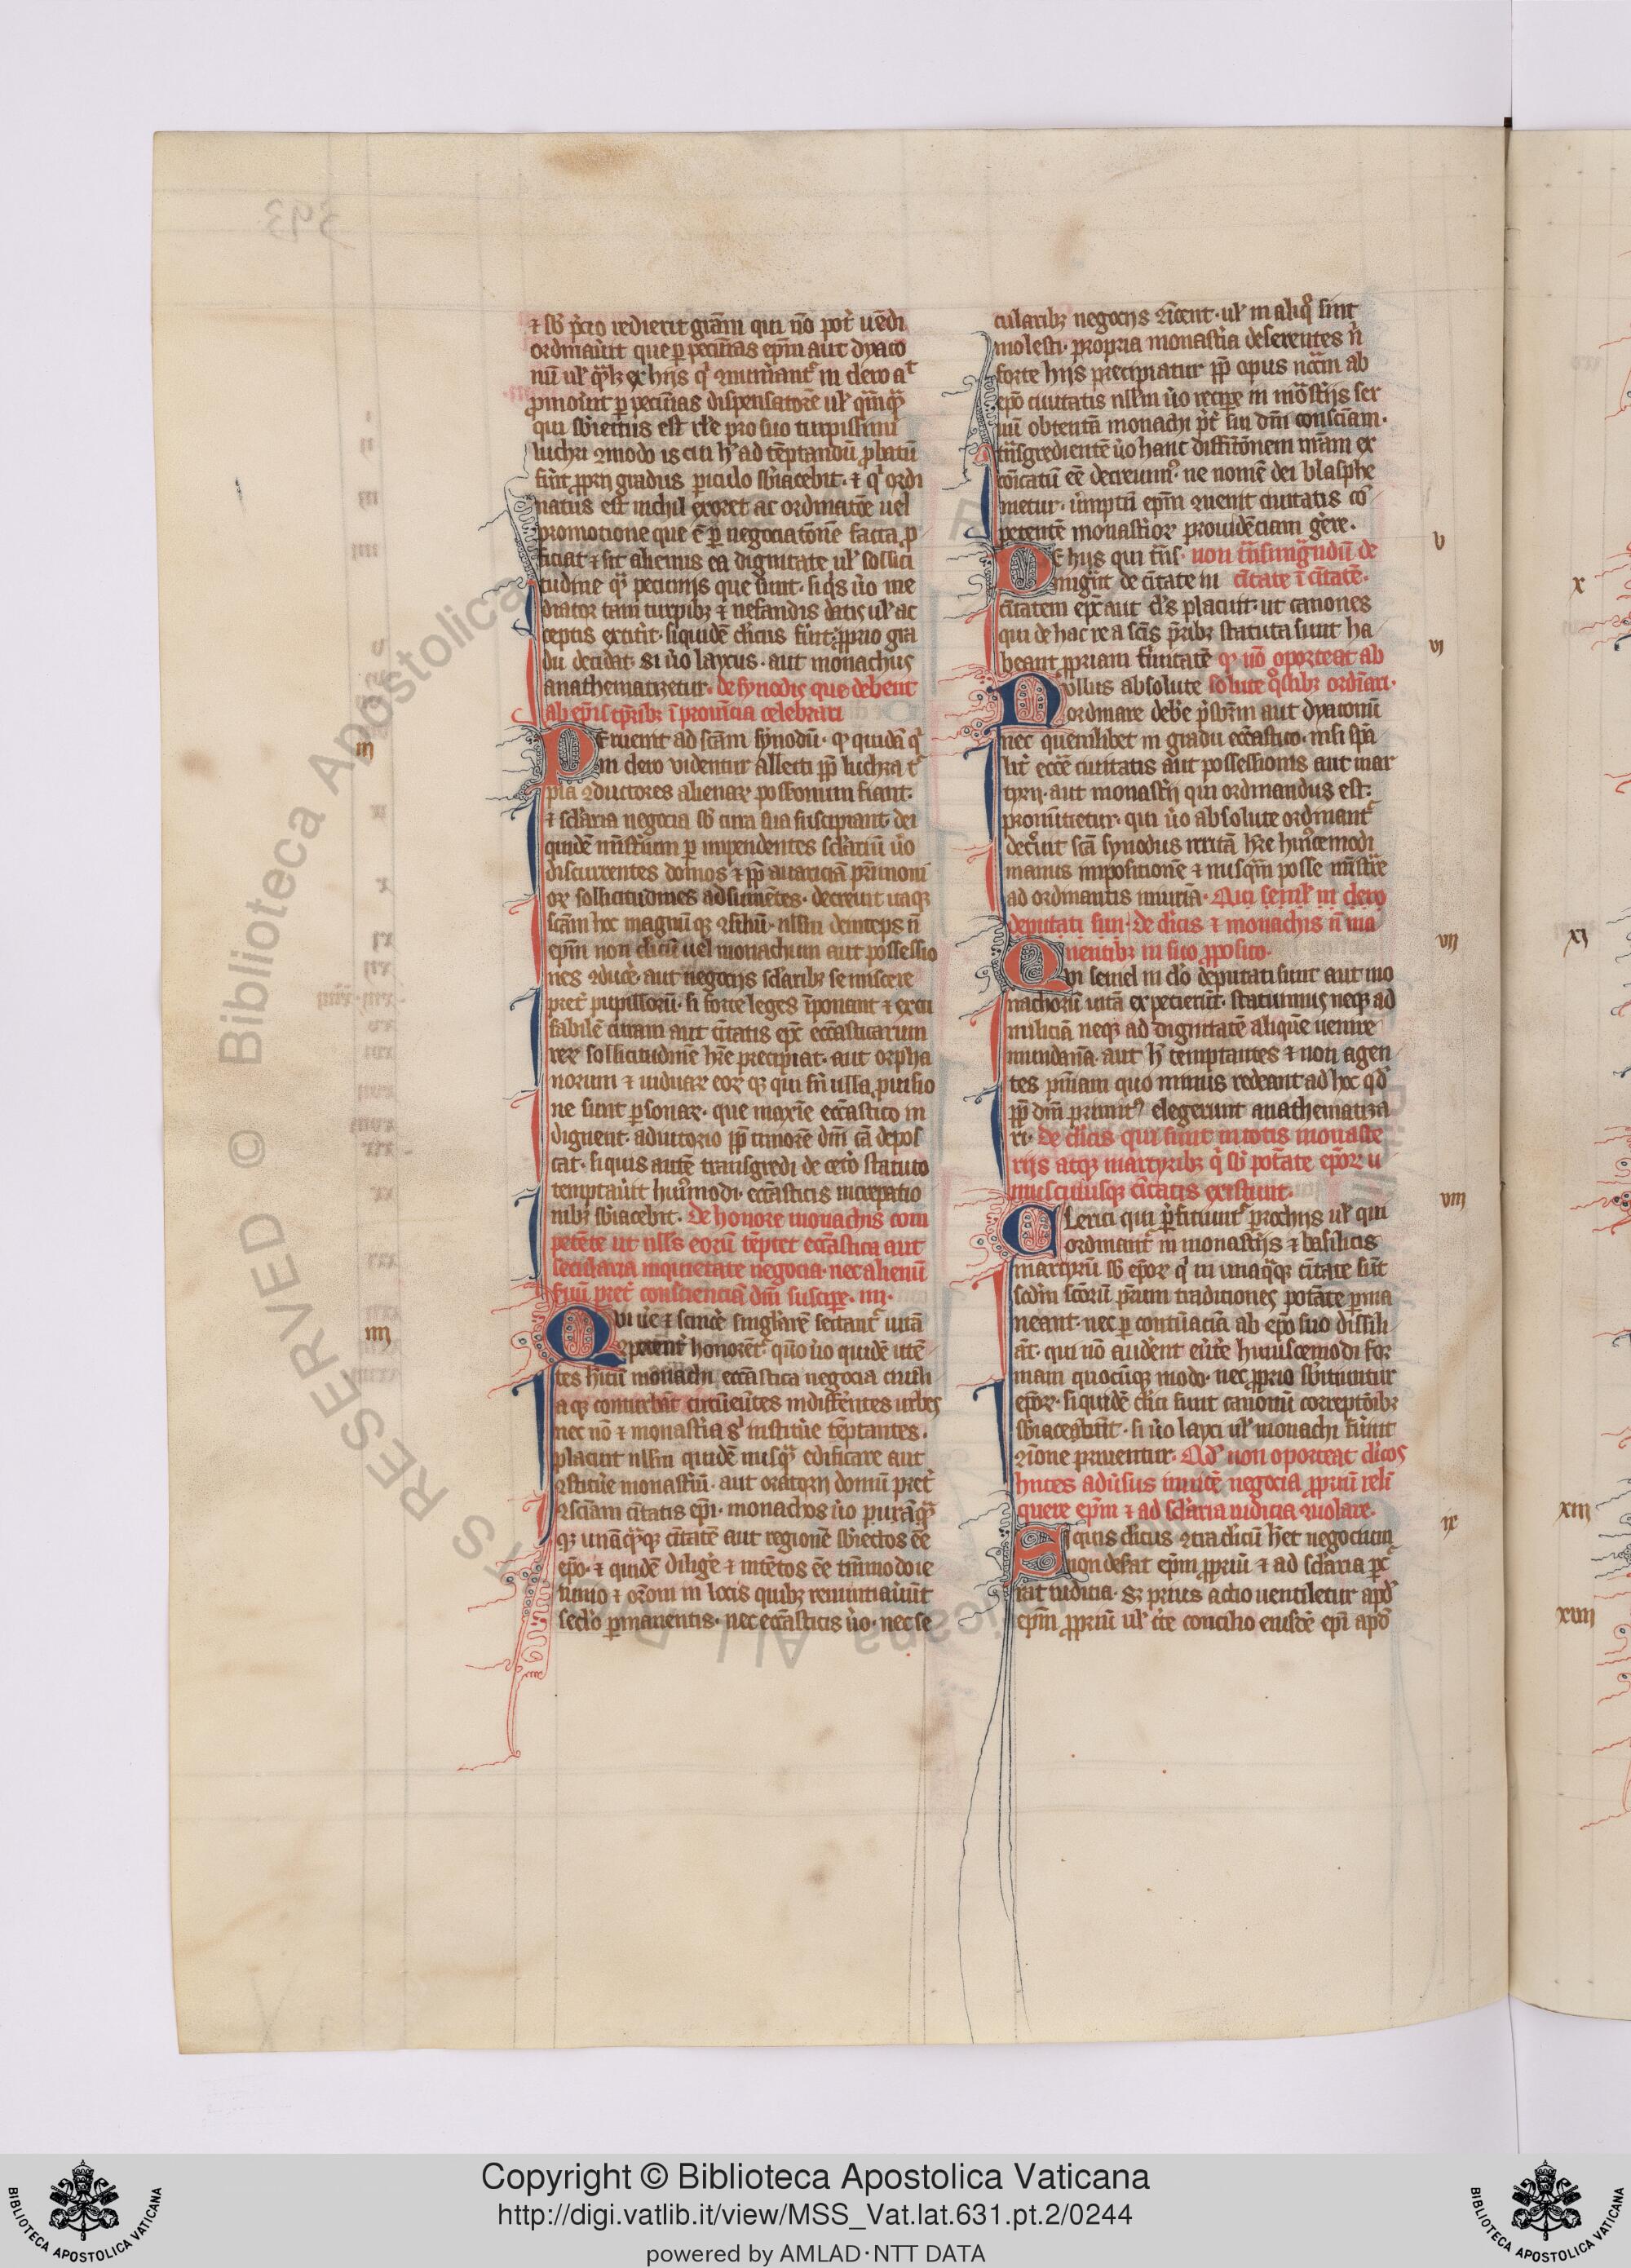 ⁊ sb p̄cio redierit gr̄am qui nō pot̄ uēdi
ordinau̇it que ꝑ pecūias ep̄m aut dyaco
nū ul̄
ꝓmou̇it ꝑ pecūias dispensatorē ul̄
qui sb̄iectus est
luchri ꝯmodo is cui h̓ ad tēptandū ꝓbatū
fu̇it ꝓprij gradus ꝑiculo sb̄iacebit · ⁊ qi ordi
natus est nichil ex ac ordinatōe uel
promocione que ē ꝑ negociatōnē facta ꝓ
ficiat ⁊ sit alienus ea dignitate ul̄ sollici
tudine pecunijs que sunt · si qis u̇o me
diator tam turpibꝫ ⁊ nefandis datis ul̄ ac
ceptis extit̄it · siquidē cl̄icus fu̇it ꝓprio gra
du decidat · Si u̇o laycus · aut monachus
anathematizetur · de synodis que debent
ab ep̄is ī prouīcia celebrari
Peruenit ad sc̄am synodū · ꝙ quidā qi
in clero videntur allecti ꝓp̄ luchra t
pia ꝯductores alienaꝝ possionum fiant ·
⁊ sc̄laria negocia sb cura sua suscipiant · dei
quidē mīst̄ium ꝑ inpendentes sc̄larium u̇o
discurrentes domos ⁊ ꝓp̄ auariciā pr̄imoni
oꝝ sollicitudines adsumētes · decreuit itaqꝫ
sc̄am hoc magnū qꝫ ꝯsiliū · nllm̄ deinceps n̄
ep̄m non cl̄icū uel monachum aut possessio
nes ꝯduce̓ · aut negocijs sc̄laribꝫ se miscere
pret̓ pupillorū · si forte leges īponant ⁊ excu
sabilē curam aut ciuitatis ep̄c ecc̄asticarum
reꝝ sollicitudinē hr̄e precipiat · aut orpha
norum ⁊ uiduaꝝ eoꝝ qꝫ qui sn̄ ulla ꝓuisio
ne sunt ꝑsonaꝝ · que maxie ecc̄astico in
digent · adiutorio ꝓp̄ timorē dn̄i cā depos
cat · si quis autē transgredi de cet̓o statuto
temptau̇it hui̓modi · ecc̄asticis increpatio
nibꝫ sb̄iacebit · De honore monachis com
petēte ut nll̓s eorū tēptet ecc̄astica aut
secularia inquietate negocia · nec alienū
suū pret̓ conscienciā dn̄i suscipe · iiii ·
Qvi ue̓ ⁊ sinc̓e singl̓arē sectant᷑ uitā
ꝯpetent̓ honorēt᷑ · qm̄o u̇o quidē utē
tes hitū monachi ecc̄astica negocia ciuili
a qꝫ conturbāt circūeūtes indiffēntes urbes
nec nō ⁊ monast̓ia si institue̓ tēptantes ·
placuit nllm̄ quidē nusqꝫ edificare aut
ꝯstitue̓ monast̓iū · aut oratorij domū pret̓
ꝯsciam ciuitatis ep̄i · monachos u̇o
qꝫ unāqꝫ ciuitatē aut regionē sb̄iectos ēe
ep̄o · ⁊ quidē dilige̓ ⁊ intētos ēe tm̄modo ie
iunio ⁊ or̄oni in locis quibꝫ renuntiau̇unt
sec̄lo ꝑmanentis · nec ecc̄asticis u̇o · nec se
cularibꝫ negocijs ꝯicent · ul̄ in aliqo sint
molesti · propria monast̓ia deserentes n̄
forte hijs precipiatur ꝓp̄ opus nc̄m ab
ep̄o ciuitatis nllm̄ u̇o recipe in mōst̓ijs ser
uū obtentū monachi pt̄ sn̄ dn̄i consciam ·
tn̄sgredientē u̇o hanc diffītōnem nr̄am ex
cōicatū ēe decreuim᷒ · ne nomē dei blasphe
metur · ue̓mptū ep̄m ꝯuenit ciuitatis cō
petentē monast̓ioꝝ prouidēciam ge̓re ·
De hijs qui tn̄s · non tn̄smigrandū de
migrāt de ciuitate in ciuitate ī ciuitatē ·
ciuitatem ep̄c aut cl̓s placuit · ut canones
qui de hac re a sc̄is pr̄ibꝫ statuta sunt ha
beant ꝓpriam firmitatē ꝙ nō oporteat ab
Nvllus absolute solute ordinari ·
ordinare debe̓ p̓sbr̄m aut dyaconū
nec quemlibet in gradu ecc̄astico · nisi spā
lit̓ ecc̄e ciuitatis aut possessionis aut mar
tyrij · aut monast̓ij qui ordinandus est ·
pronūtietur · qui u̇o absolute ordinant᷑
decreuit sc̄a synodus irritā hr̄e hui̓cemodi
manus impositionē ⁊ nusqm̄ posse mīstr̓e
ad ordinantis iniuriā · Qui semel in clero
deputati sūt · de cl̄icis ⁊ monachis n̄ ma
nentibꝫ in suo ꝓposito ·
Qvi semel in cl̓o deputati sunt aut mo
nachorū uitā expetierūt · statuimus neqꝫ ad
miliciā neqꝫ ad dignitatē aliquē uenire
mundanā · aut h̓ temptantes ⁊ non agen
tes pn̄iam quo minus redeant ad hoc qd̄
ꝓp̄ dm̄ primit᷒ elegerunt anathematiza
ri · De cl̄icis qui sunt in totis monaste
rijs atqꝫ martyribꝫ qi sb potāte ep̄oꝝ u
niusculusqꝫ ciuitatis existunt ·
Clerici qui p̓ficiunt᷑ ptochijs ul̄ qui
ordinant᷑ in monast̓ijs ⁊ basilicis
martyrū sb ep̄oꝝ qi in unaqꝫqꝫ ciuitate sūt
scd̄m sc̄orū pr̄um traditiones potāte ꝑma
neant · nec ꝑ contūaciā ab ep̄o suo dissili
āt · qui nō audent eu̓te huiuscemodi for
mam quocūqꝫ modo · nec ꝓprio sb̄iciuntur
ep̄oꝝ · siquidē cl̄ici sunt canonū correptōibꝫ
sb̄iacebunt · si u̇o layci ul̄ monachi fu̇int
ꝯīone priuentur · Qd̄ non oporteat cl̄icos
hn̄tes adu̓sus inuicē negocia ꝓpriū relī
quere ep̄m ⁊ ad sc̄laria iudicia ꝯuolare ·
Si quis cl̄icus ꝯtra cl̄icū het negocium
non deserat ep̄m ꝓpriū ⁊ ad sc̄laria ꝑc
rat iudicia · sꝫ prius actio uentiletur apd̄
ep̄m ꝓpriū ul̄ ct̓e concilio eiusdē ep̄i apd̄
iii
iiii
v
vi
vii
viii
ix
x
xi
xiii
xiiii
393
© Biblioteca Apostolica Vaticana ALL RIGHTS RESERVED
Copyright © Biblioteca Apostolica Vaticana
http://digi.vatlib.it/view/MSS_Vat.lat.631.pt.2/0244
powered by AMLAD·NTT DATA
BIBLIOTECA APOSTOLICA VATICANA
BIBLIOTECA APOSTOLICA VATICANA